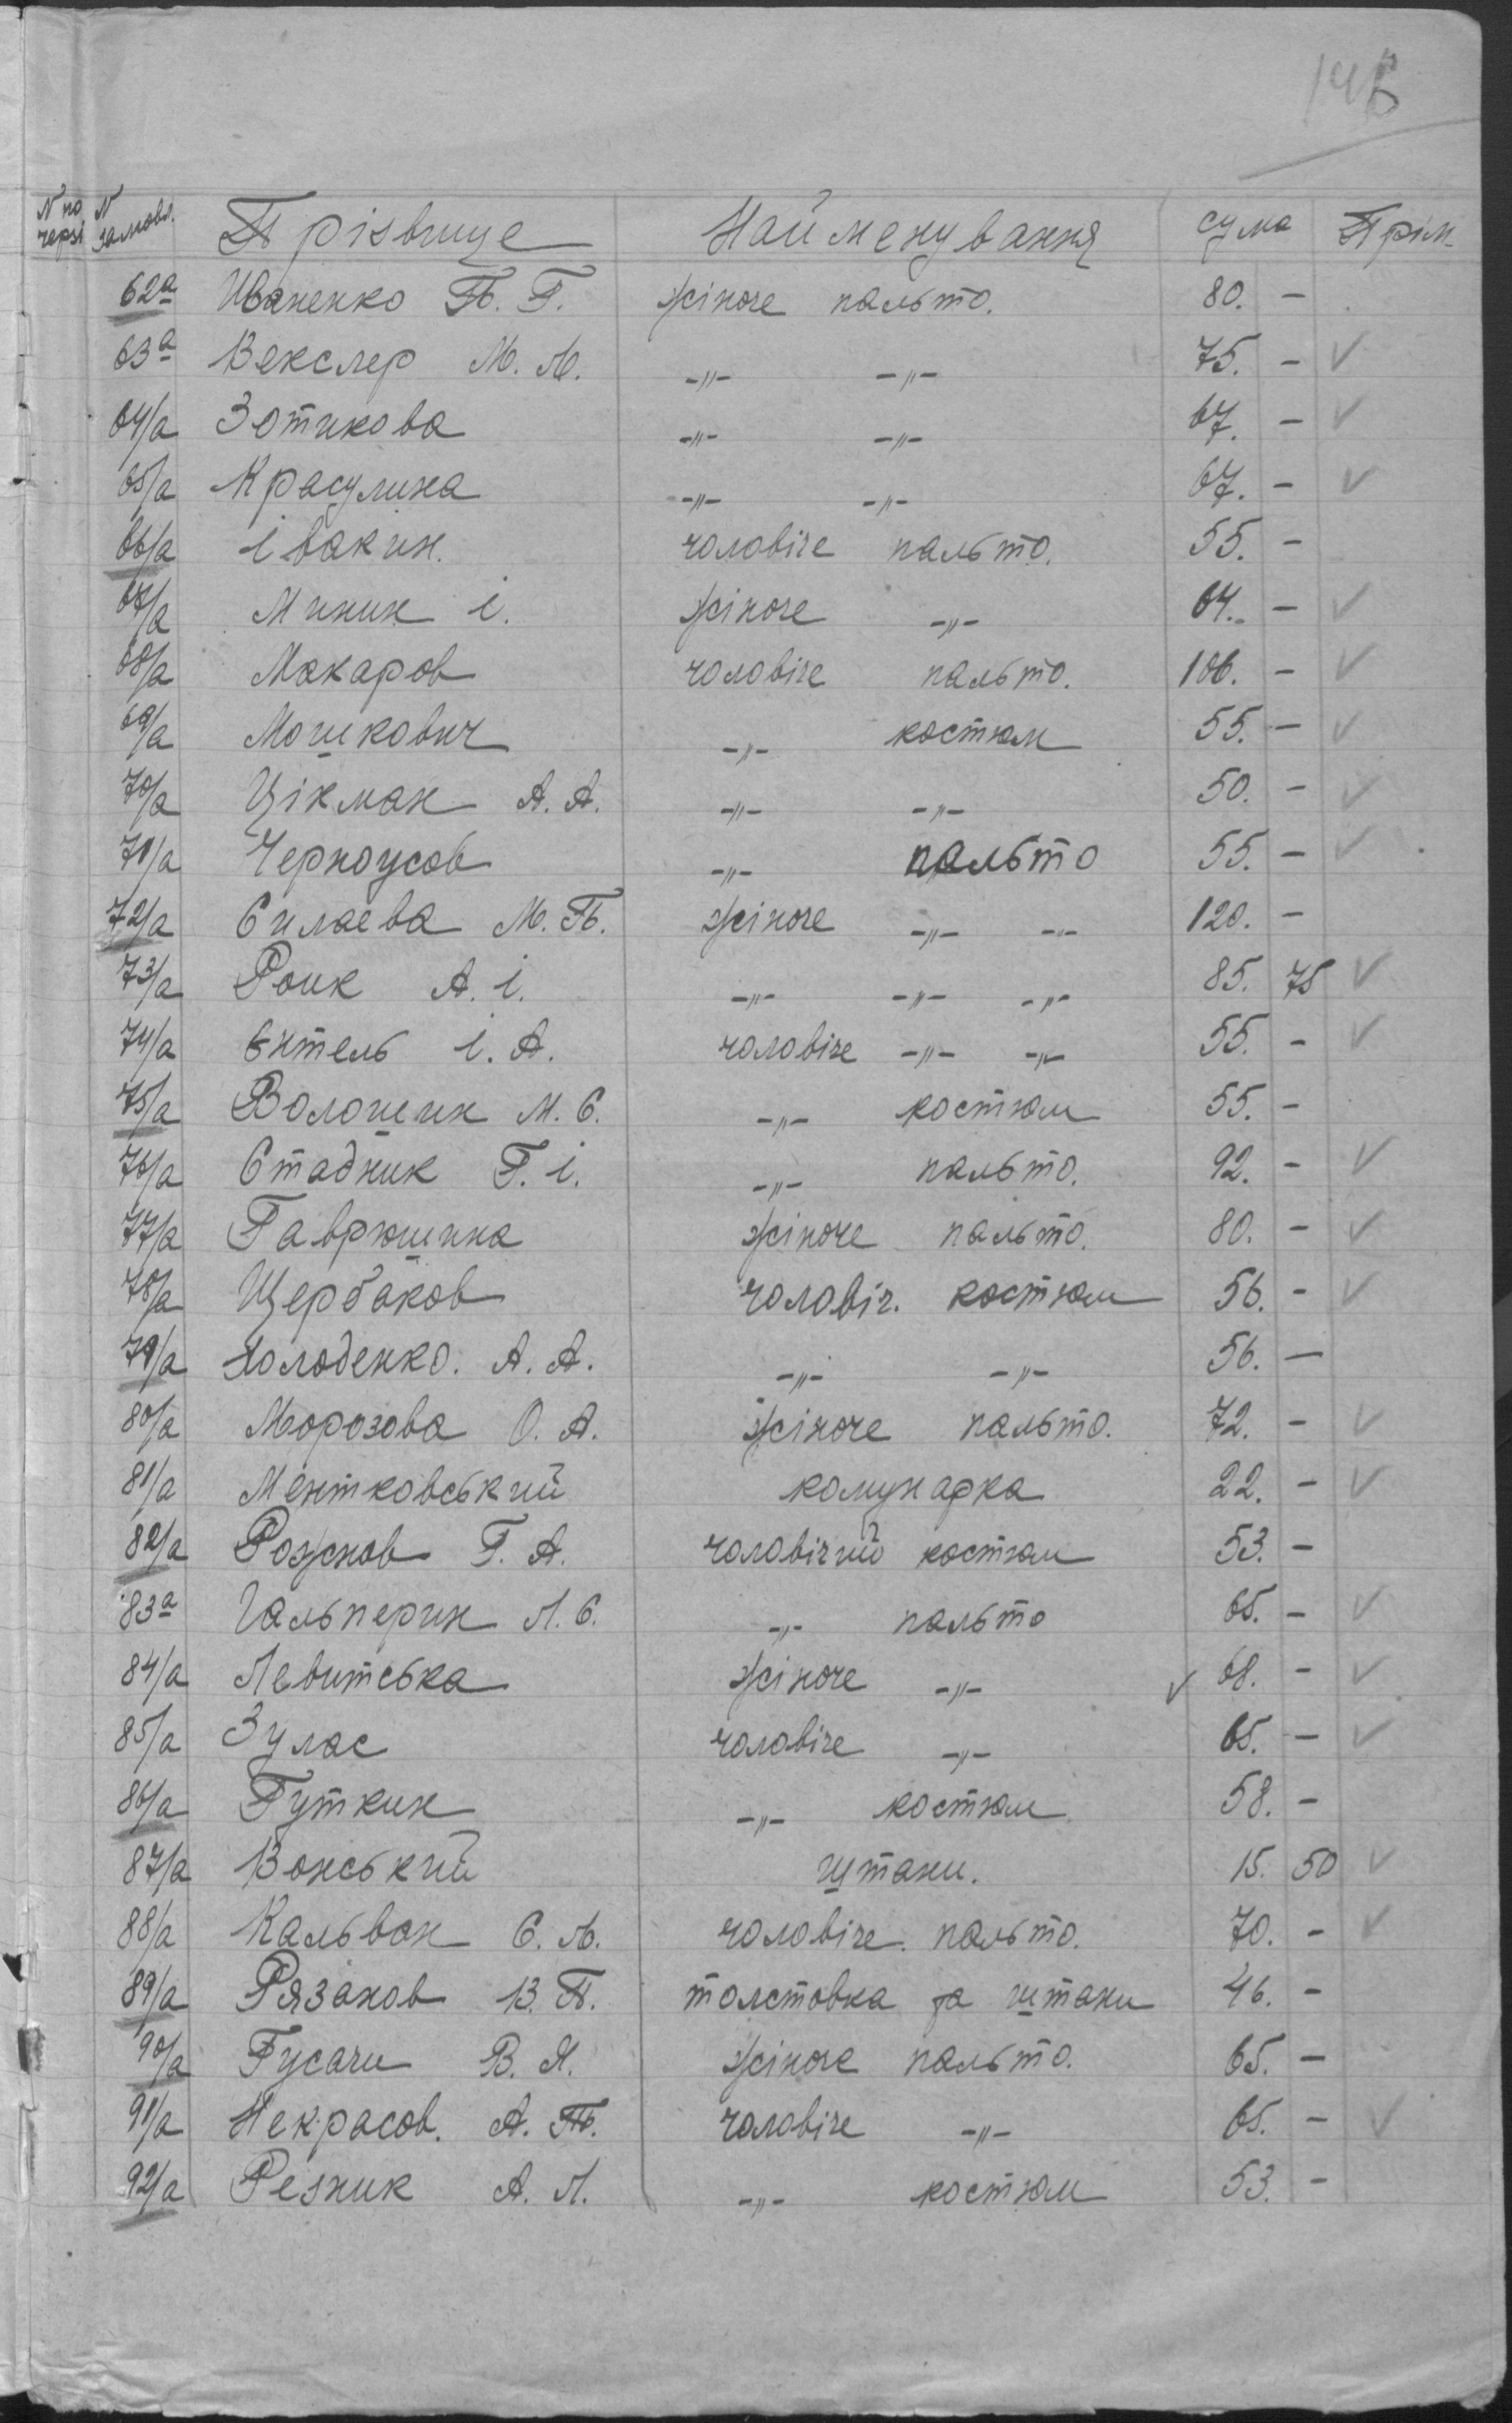 14В
N по черзі N замовл. Прізвище Найменування сума Прім.
62а Иваненко П. Г. жіноче пальто. 80. -
63а Векслер М. М. -"- -"- 75. - ✓
64/а Зотикова -"- -"- 67. - ✓
65/а Красулина -"- -"- 67. - ✓
66/а івакин. чоловіче пальто. 55. -
67/а Миник і. жіноче -"- 64. - ✓
68/а Макаров чоловіче пальто. 106. - ✓
69/а Мошкович -"- костюм 55. - ✓
70/а Цікман А. А. -"- -"- 50. - ✓
71/а Черноусов -"- пальто 55. - ✓
72/а Силаева М. П. жіноче -"- -"- 120. -
73/а Роик А. і. -"- -"- -"- 85. 75 ✓
74/а Ентель і. А. чоловіче -"- -"- 55. - ✓
75/а Волошин М. С. -"- костюм 55. -
76/а Стадник Г. і. -"- пальто. 92. - ✓
77/а Гаврюшина жіноче пальто. 80. - ✓
78/а Щербаков чоловіч. костюм 56. - ✓
79/а Холоденко. А. А. -"- -"- 56. -
80/а Морозова О. А. жіноче пальто. 72. - ✓
81/а Ментковський комунарка 22. - ✓
82/а Рожнов Г. А. чоловічий костюм 53. -
83а Гальперин Л. С. -"- пальто 65. - ✓
84/а Левитська жіноче -"- ✓ 68. - ✓
85/а Зулас чоловіче -"- 65. - ✓
86/а Гуткин -"- костюм 58. -
87/а Вонський штани. 15. 50 ✓
88/а Кальвон С. М. чоловіче. пальто. 70. - ✓
89/а Рязанов В. П. толстовка та штани 46. -
90/а Гусачи В. Я. жіноче пальто. 65. -
91/а Некрасов. А. П. чоловіче -"- 65. - ✓
92/а Резник А. Л. -"- костюм 53. -